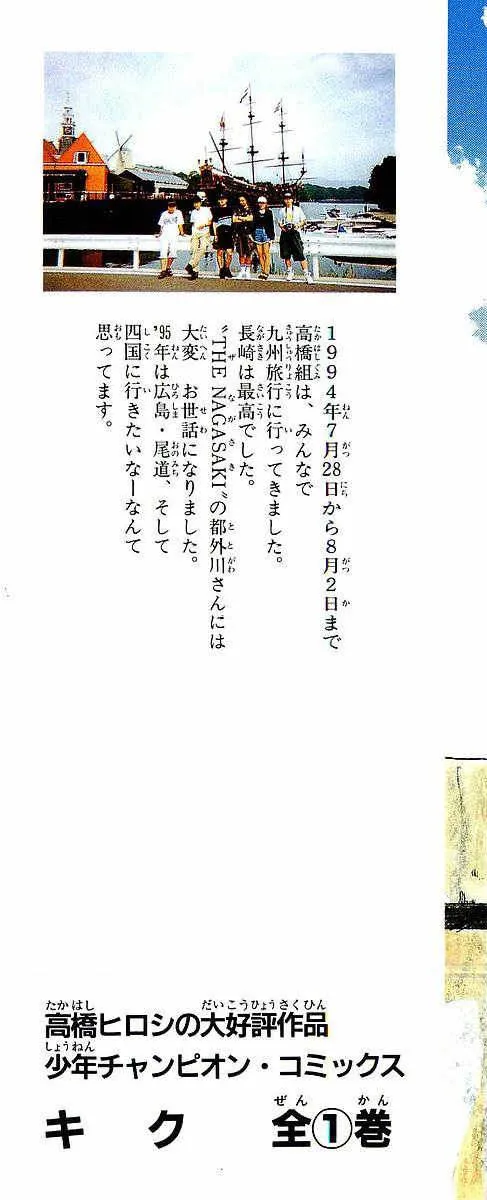 1994年7月28日から8月2日まで
高橋組は、みんなで
九州旅行に行ってきました。
長崎は最高でした。
"THE NAGASAKI"の都外川さんには
大変　お世話になりました。
'95年は広島・尾道、そして
四国に行きたいなーなんて
思ってます。
高橋ヒロシの大好評作品
少年チャンピオン・コミックス
キク　全①巻